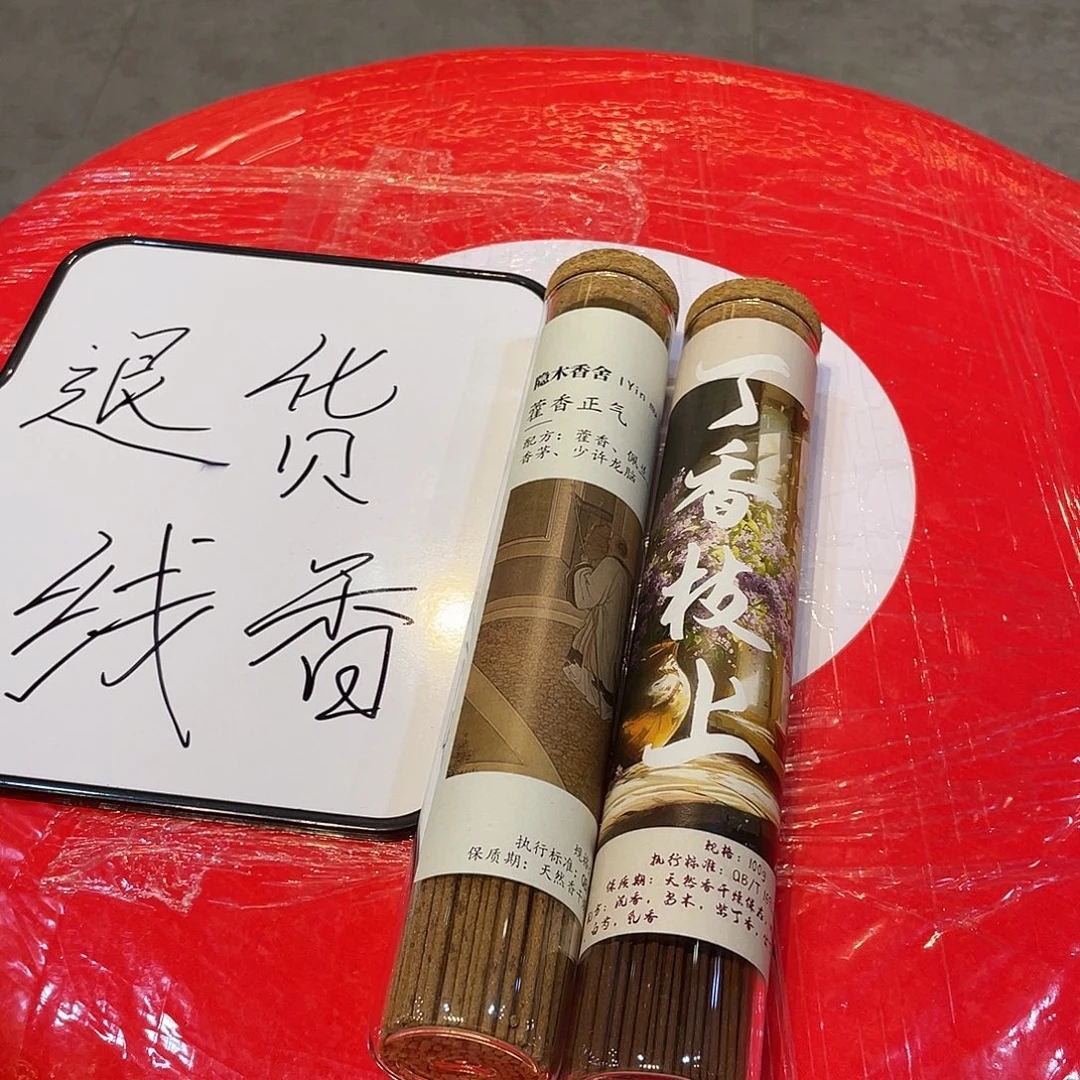 退货
线香
隐木香舍 | Yin mu
藿香正气
配方：藿香、佩兰
香茅、少许龙脑
执行标准：QB
保质期：天然香干
丁香枝上
规格：100g
执行标准：QB/T
保质期：天然香干燥保存
沉香，
白芍，乳香